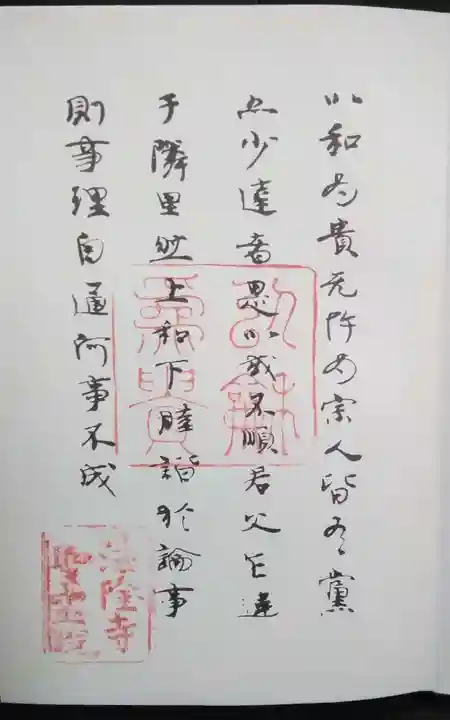 以和為貴无忤為宗人皆有黨
亦少達者是以或不順君父乍違
于隣里然上和下睦諧於論事
則事理自通何事不成
以龢
為貴
法隆寺
聖霊院